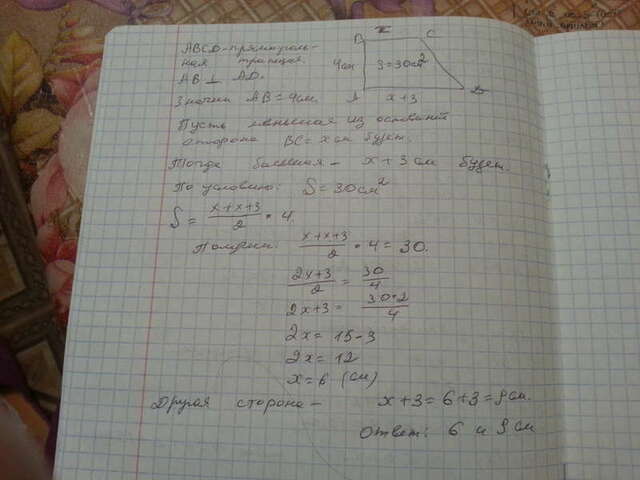 ABCD - прямоуголь-
ная трапеция.
AB ⊥ AD.
Значит AB = 4см.
x
B C
4см S = 30см²
A D
x + 3
Пусть меньшая из оснований
сторона BC = x см будет.
Тогда большая - x + 3 см будет.
По условию: S = 30см²
S = (x + x + 3)/2 • 4.
Получим: (x + x + 3)/2 • 4 = 30.
(2x + 3)/2 = 30/4
2x + 3 = (30 • 2)/4
2x = 15 - 3
2x = 12
x = 6 (см)
Другая сторона - x + 3 = 6 + 3 = 9 см.
Ответ: 6 и 9 см